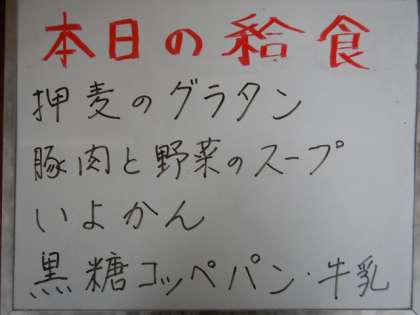 本日の給食
押麦のグラタン
豚肉と野菜のスープ
いよかん
黒糖コッペパン・牛乳